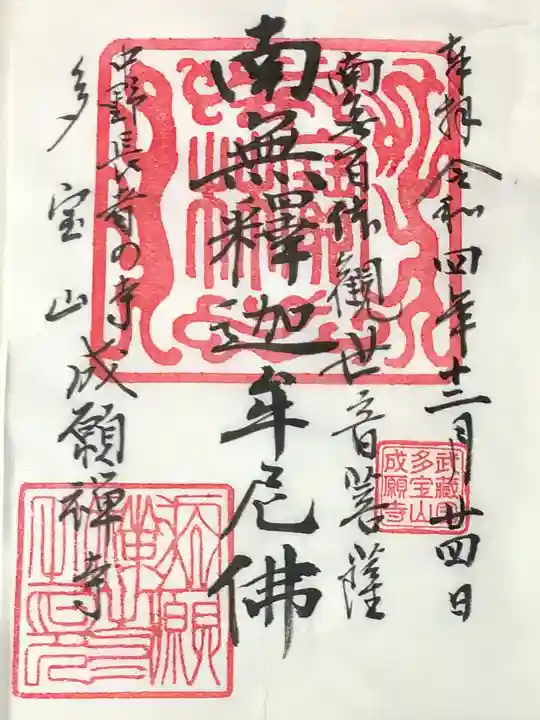 奉拝 令和四年十二月廿四日
南無百体觀世音菩薩
南無釋迦牟尼佛
中野長者の寺
多宝山 成願禅寺
武蔵国
多宝山
成願寺